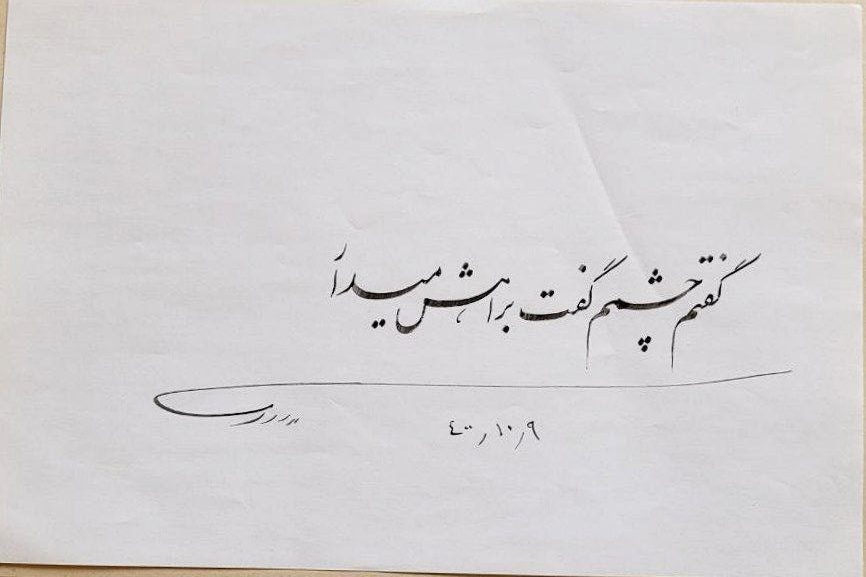 گفتم چشمم گفت براهش میدار
۴۰۰٫۱۰٫۹